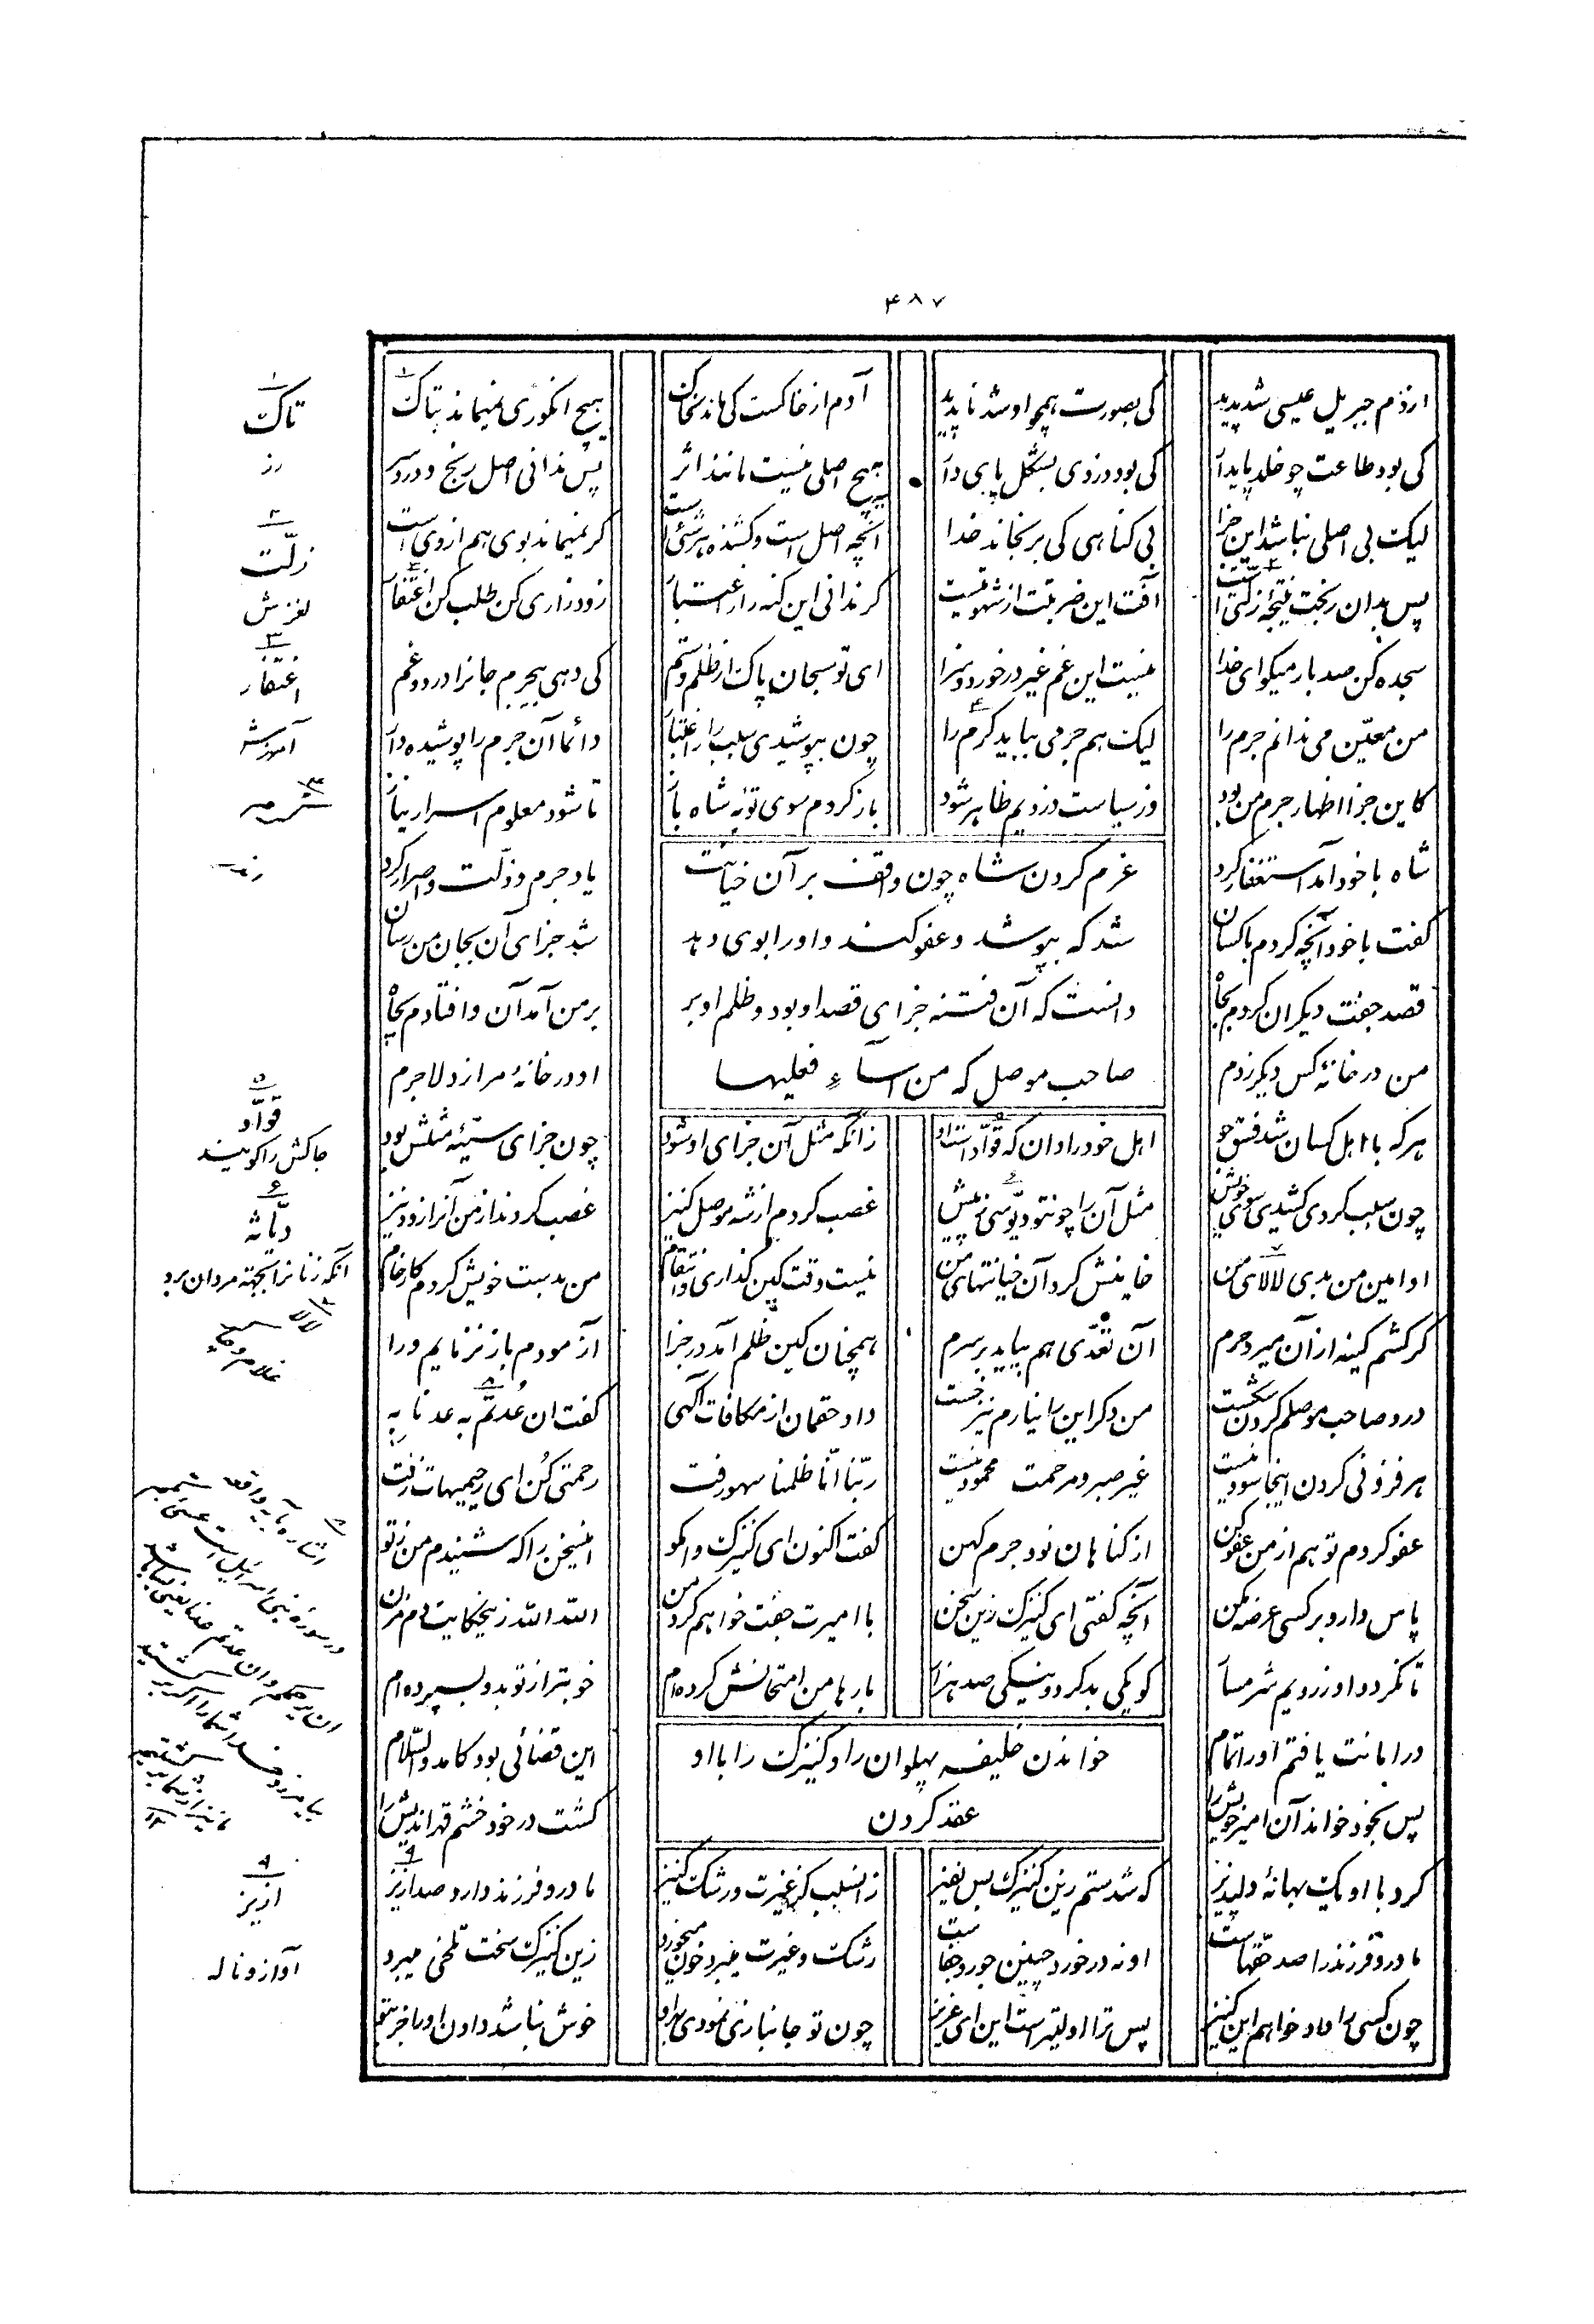 ۴۸۷
از دم جبریل عیسی شد پدید کی بصورت همچو او شد ناپدید آدم از خاکست کی ماند بخاک هیچ انگوری نمیماند بتاک
کی بود طاعت چو خلد پایدار کی بود دزدی بشکل پای دار هیچ اصلی نیست مانند اثر پس ندانی اصل رنج و درد سر
لیک بی اصلی نباشد این جزا بی گناهی کی برنجاند خدا آنچه اصل است و کشنده هر شئی است گر نمیماند بوی هم از وی است
پس بدان رنجت نتیجهٔ زلتی است آفت این ضربتت از شهوتیست گر ندانی این گنه را ز اعتبار زود زاری کن طلب کن اغتفار
سجده کن صد بار میگو ای خدا نیست این غم غیر در خورد و سزا ای تو سبحان پاک از ظلم و ستم کی دهی بیجرم جانرا درد و غم
من معیّن می ندانم جرم را لیک هم جرمی بباید کرم را چون بپوشیدی سبب را ز اعتبار دائما آن جرم را پوشیده دار
کاین جزا اظهار جرم من بود وز سیاست دزدیم ظاهر شود باز گردم سوی توبه شاه باز تا شود معلوم اسرار نیاز
عزم کردن شاه چون واقف بر آن خیانت
شد که بپوشد و عفو کند و او را بوی دهد
دانست که آن فتنه جزای قصد او بود و ظلم او بر
صاحب موصل که من اساء فعلیها
شاه با خود آمد استغفار کرد یاد جرم و زلّت و اصرار کرد
گفت با خود آنچه کردم با کسان شد جزای آن بجان من رسان
قصد جفت دیگران کردم بجاه بر من آمد آن و افتادم بچاه
من در خانهٔ کس دیگر زدم او در خانهٔ مرا زد لاجرم
هر که با اهل کسان شد فسق جو اهل خود را دان که قوّاد است او زانکه مثل آن جزای او شود چون جزای سیّئه مثلش بود
چون سبب کردی کشیدی سوی خویش مثل آن را چون تو دیّوسی ز پیش غصب کردم از شه موصل کنیز غصب کردند از من آنرا زود نیز
او امین من بدی لالای من خاینش کرد آن خیانتهای من نیست وقت کین گذاری و انتقام من بدست خویش کردم کار خام
گر کشم کینه از آن میر و حرم آن تعدّی هم بیاید بر سرم همچنان کین ظلم آمد در جزا آزمودم باز نزنمایم ورا
درد صاحب موصلم گردن شکست من دگر این را نیارم نیز خست داد حقمان از مکافات آگهی گفت ان عدتم به عدنا به
هر فزونی کردن اینجا سود نیست غیر صبر و مرحمت محمود نیست ربّنا انّا ظلمنا سهو رفت رحمتی کن ای رحیمیهات زفت
عفو کردم تو هم از من عفو کن از گناهان نو و جرم کهن گفت اکنون ای کنیزک وامگو اینسخن را که شنیدم من ز تو
پاس دار و بر کسی عرضه مکن آنچه گفتی ای کنیزک زین سخن با امیرت جفت خواهم کرد من الله الله زین حکایت دم مزن
تا نگردد او ز رویم شرمسار کو یکی بد کرد و نیکی صد هزار بارها من امتحانش کرده‌ام خوبتر از تو بدو بسپرده‌ام
خواندن خلیفه پهلوان را و کنیزک را با او
عقد کردن
در امانت یافتم او را تمام این قضائی بود کامد والسّلام
پس بخود خواند آن امیر خویش را کشت در خود خشم قهر اندیش را
کرد با او یک بهانهٔ دلپذیر که شدستم زین کنیزک بس نفیر زان سبب کز غیرت و رشک کنیز مادر فرزند دارد صد ازیز
مادر فرزند را صد حقهاست او نه در خورد چنین جور و جفاست رشک و غیرت میبرد خون میخورد زین کنیزک سخت تلخی میبرد
چون کسی را داد خواهم این کنیز پس ترا اولیتر است این ای عزیز چون تو جانبازی نمودی بهر او خوش نباشد دادن او را جز بتو
۱
تاک
رز
۲
زلّت
لغزش
۳
اغتفار
آمرزش
۵
قوّاد
جاکش را گویند
۶
دیّاثه
آنکه زنانرا بجهة مردان برد
لالا
۸
اشاره بآیه واقعه
در سوره بنی اسرائیل است عسی
۹
ازیز
آواز و ناله